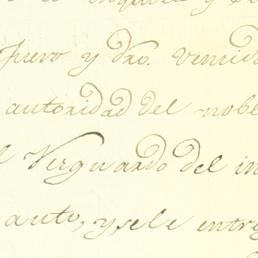 fuero y dro. venid
autoridad del nobl
l Virguardo del in
auto, y sele entre